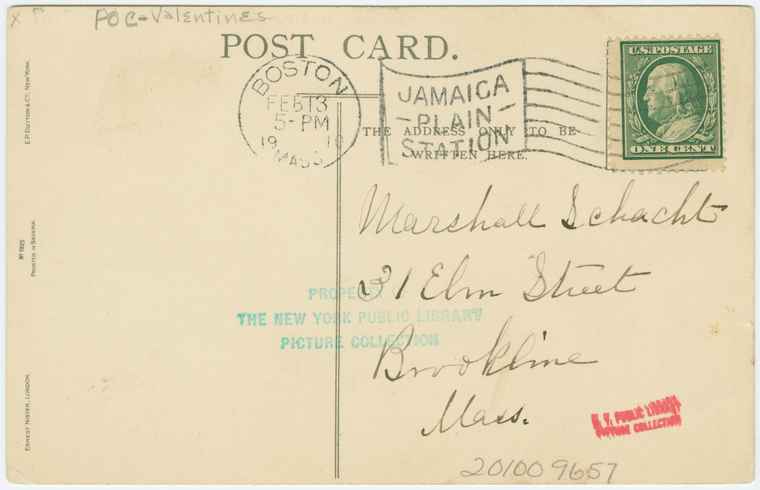 POC-Valentines
POST CARD.
BOSTON
FEB 13
5-PM
19 10
MASS.
JAMAICA
PLAIN
STATION
U.S. POSTAGE
ONE CENT
THE ADDRESS ONLY TO BE
WRITTEN HERE.
E.P. DUTTON & CO., NEW YORK.
Nº 1925
PRINTED IN BAVARIA
ERNEST NISTER, LONDON.
Marshall Schacht
31 Elm Street
Brookline
Mass.
PROPERTY OF
THE NEW YORK PUBLIC LIBRARY
PICTURE COLLECTION
N. Y. PUBLIC LIBRARY
PICTURE COLLECTION
201009657